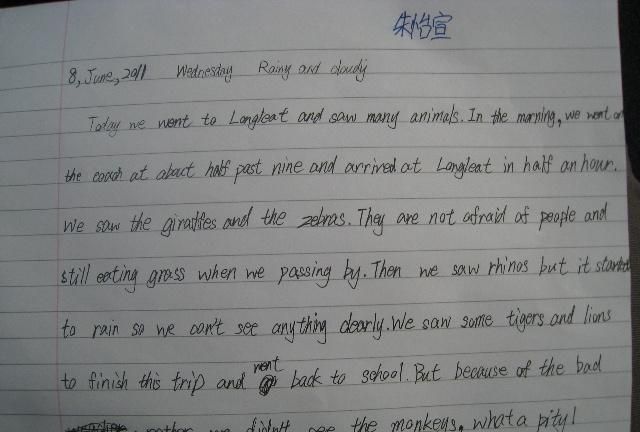 朱怡宣
8, June, 2011 Wednesday Rainy and cloudy
Today we went to Longleat and saw many animals. In the morning, we went on
the coach at about half past nine and arrived at Longleat in half an hour.
We saw the giraffes and the zebras. They are not afraid of people and
still eating grass when we passing by. Then we saw rhinos but it started
to rain so we can't see anything clearly. We saw some tigers and lions
to finish this trip and went back to school. But because of the bad
we didn't see the monkeys. what a pity!